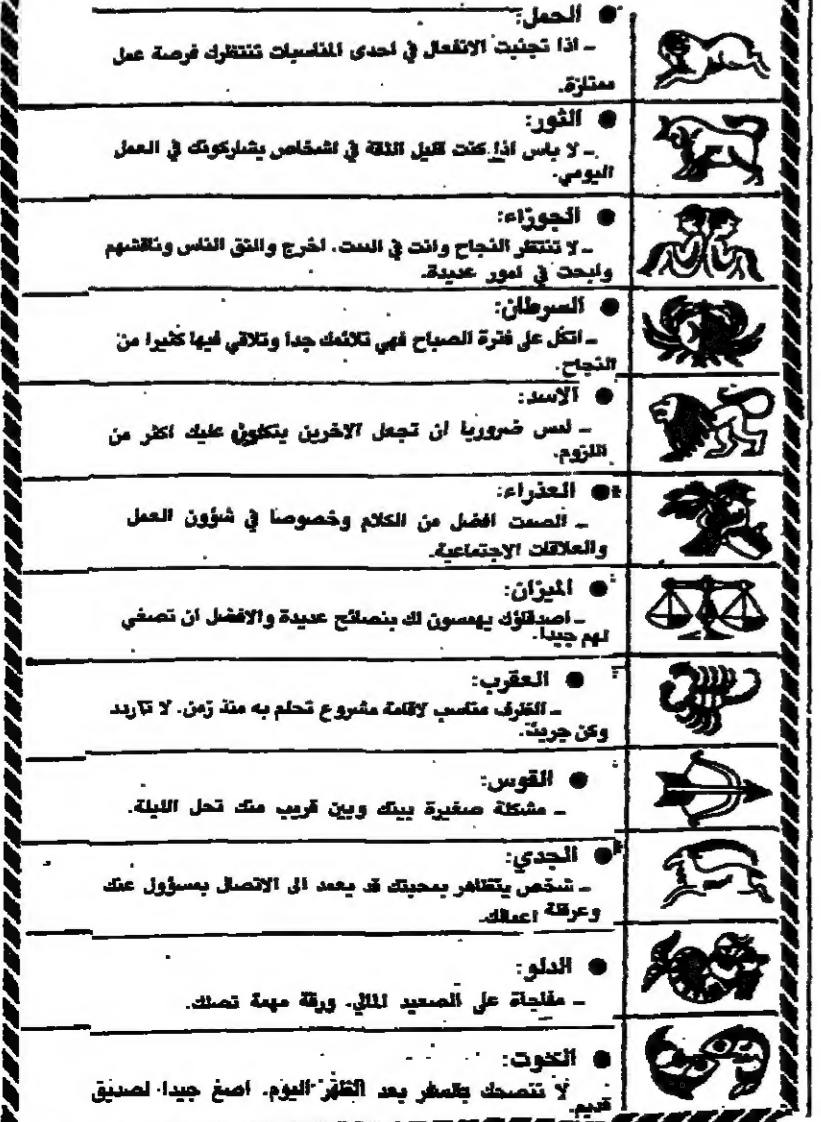 ● الحمل:
ـ اذا تجنبت الانفعال في احدى المناسبات تنتظرك فرصة عمل
ممتازة.
● الثور:
ـ لا باس اذا كنت قليل الثقة في اشخاص يشاركونك في العمل
اليومي.
● الجوزاء:
ـ لا تنتظر النجاح وانت في البيت. اخرج والتق الناس وناقشهم
وابحث في امور عديدة.
● السرطان:
ـ اتكل على فترة الصباح فهي تلائمك جدا وتلاقي فيها كثيرا من
النجاح.
● الاسد:
ـ ليس ضروريا ان تجعل الاخرين يتكلون عليك اكثر من
اللزوم.
● العذراء:
ـ الصمت افضل من الكلام وخصوصا في شؤون العمل
والعلاقات الاجتماعية.
● الميزان:
ـ اصدقاؤك يهمسون لك بنصائح عديدة والافضل ان تصغي
لهم جيدا.
● العقرب:
ـ الظرف مناسب لاقامة مشروع تحلم به منذ زمن. لا
وكن جريئا.
● القوس:
ـ مشكلة صغيرة بينك وبين قريب منك تحل الليلة.
● الجدي:
ـ شخص يتظاهر بمحبتك قد يعمد الى الاتصال بمسؤول عنك
وعرقلة اعمالك.
● الدلو:
ـ مفاجاة على الصعيد المالي. ورقة مهمة تصلك.
● الحوت:
لا ننصحك بالسفر بعد الظهر اليوم. اصغ جيدا لصديق
قديم.